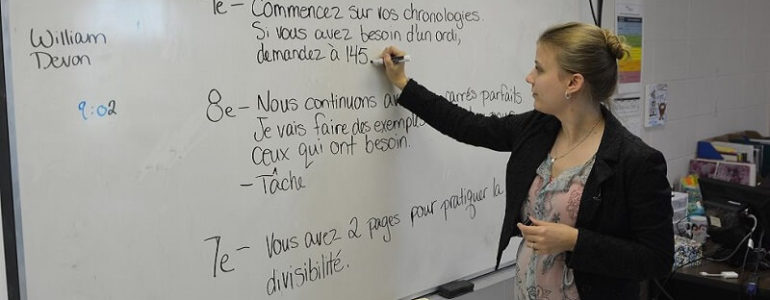 William
Devon
9:02
1e - Commencez sur vos chronologies.
Si vous avez besoin d'un ordi,
demandez à 145.
8e - Nous continuons carrés parfaits
Je vais faire des exemples
ceux qui ont besoin.
- Tâche
7e - Vous avez 2 pages pour pratiquer la
divisibilité.